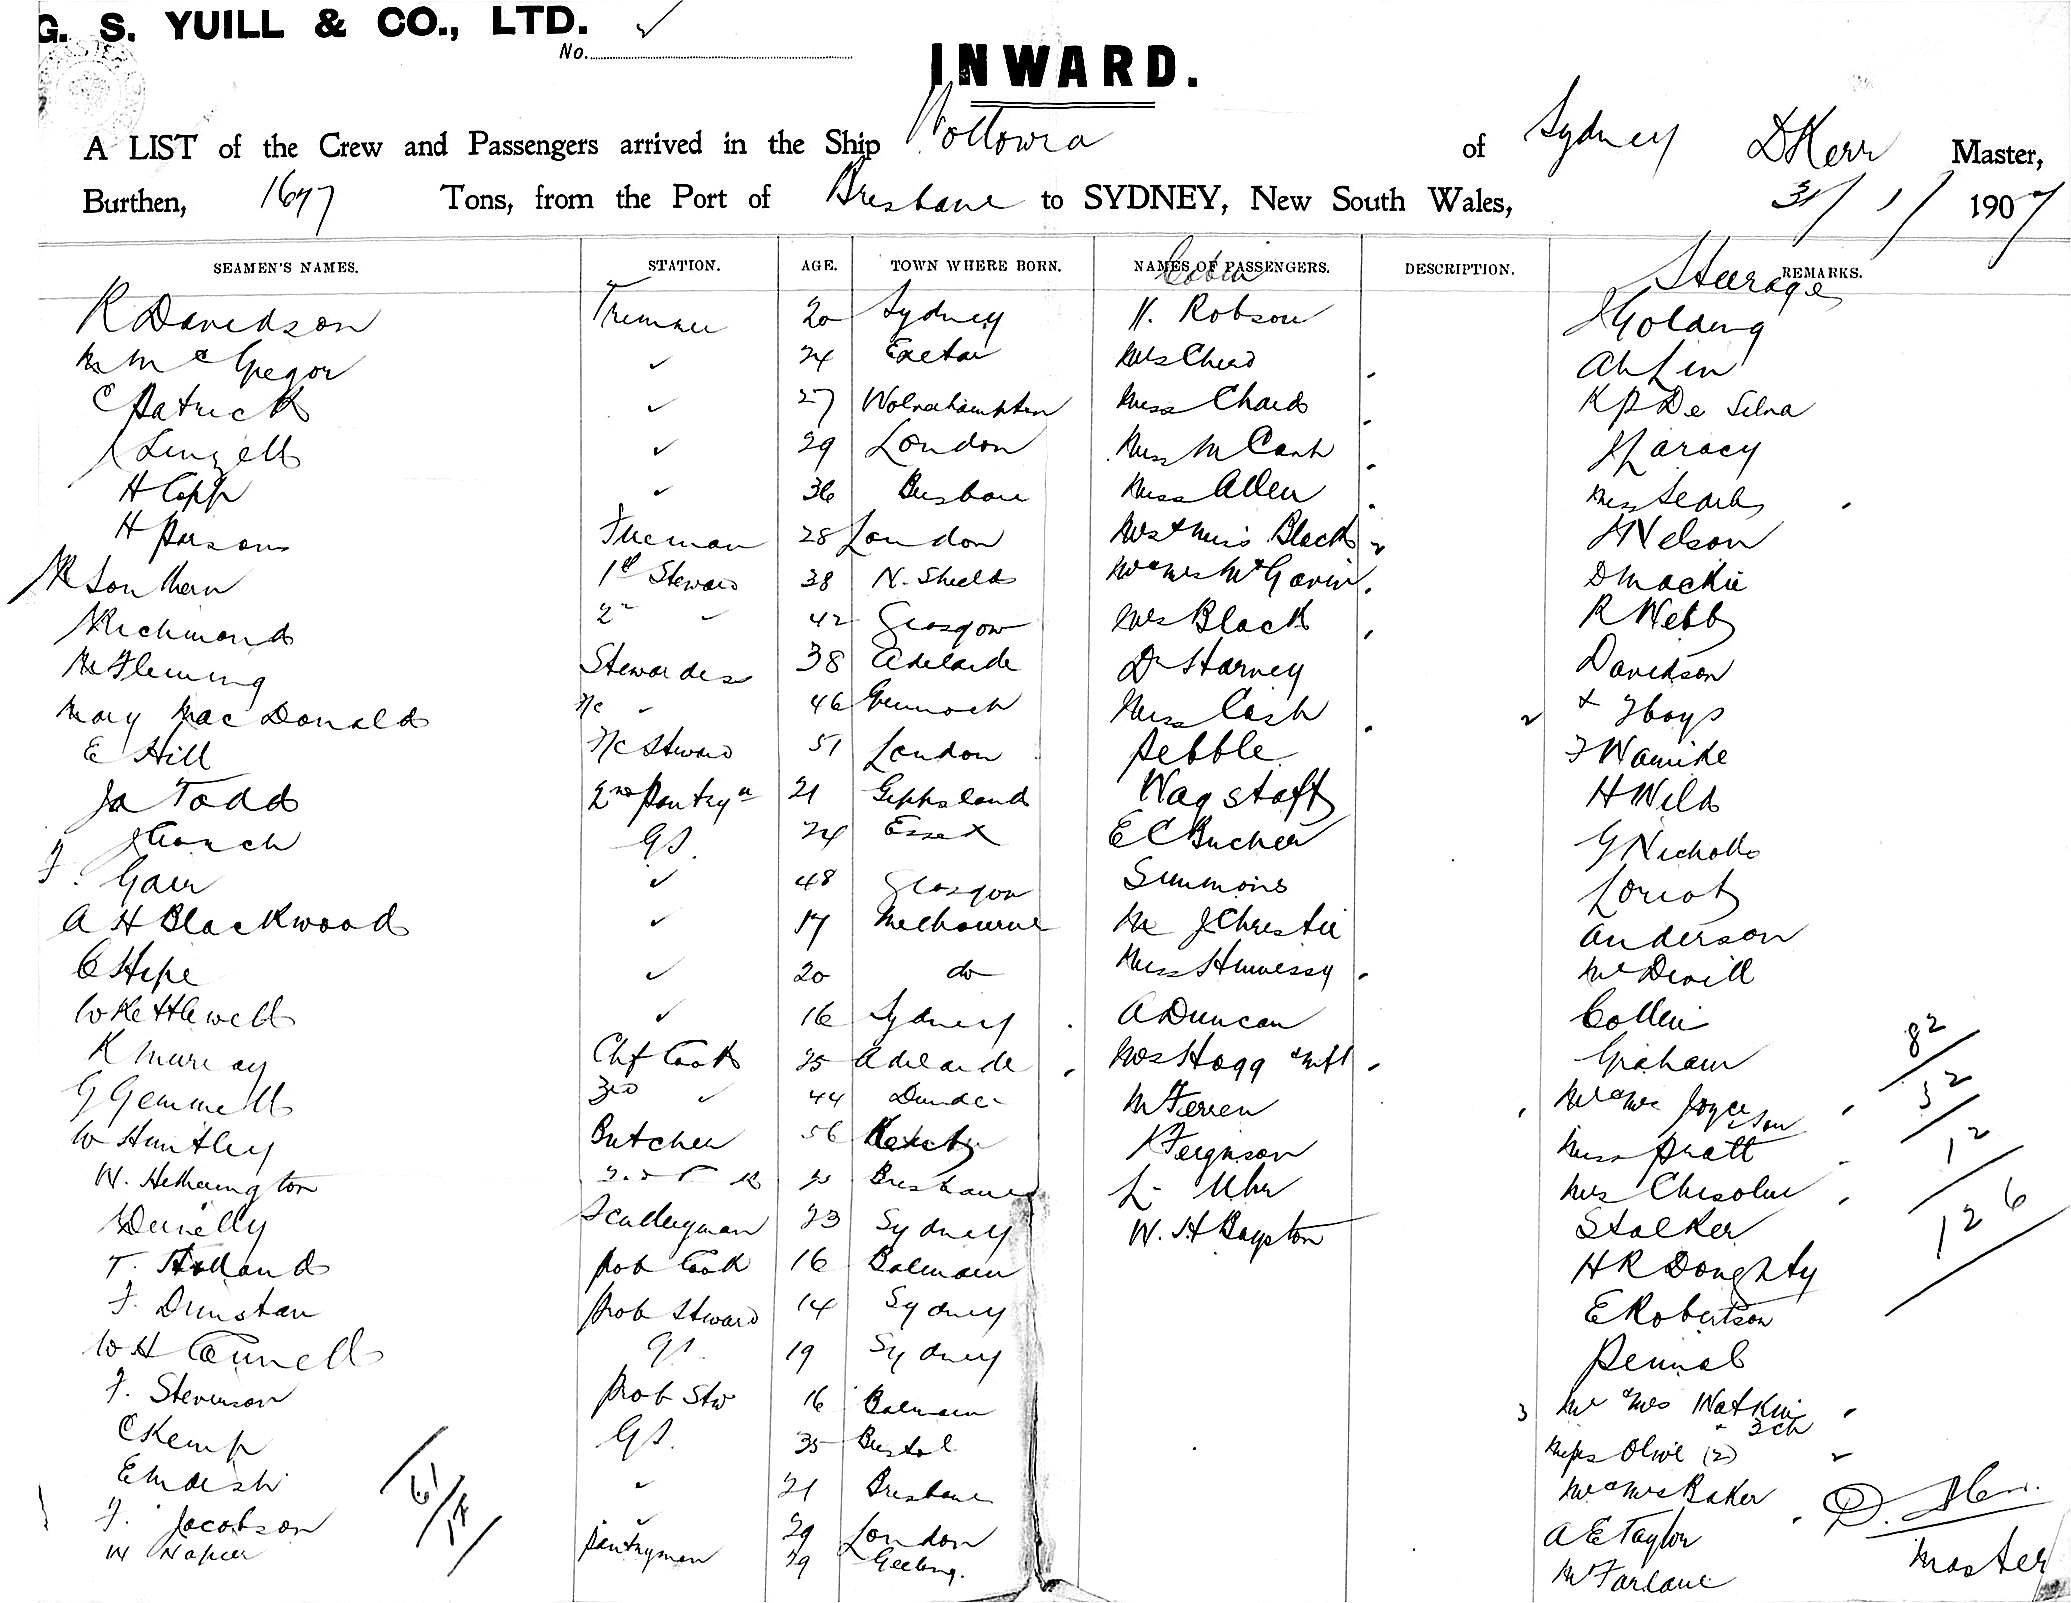 G. S. YUILL & CO., LTD. ✓
No.
INWARD.
A LIST of the Crew and Passengers arrived in the Ship Wollowra of Sydney D Kerr Master,
Burthen, 1677 Tons, from the Port of Brisbane to SYDNEY, New South Wales, 31/1/1907
SEAMEN'S NAMES. STATION. AGE. TOWN WHERE BORN. NAMES OF PASSENGERS. DESCRIPTION. REMARKS.
Cabin Steerage
R Davidson Trimmer 20 Sydney H. Robson J Golding
M McGregor ✓ 24 Exeter Mrs Ah Lin
C Patrick ✓ 27 Wolverhampton Miss K P De Silva
Linzell ✓ 29 London Miss M Cash
H Copp ✓ 36 Brisbane Miss Allen Mrs
H Parsons Fireman 28 London Mrs & Miss Black 2 J Nelson
Southern 1st Steward 38 N. Shields Mr & Mrs McGavin D Mackie
Richmond 2nd " 42 Glasgow Mrs Black R Webb
M Fleming Stewardess 38 Adelaide Dr Harvey Davidson
Mary MacDonald " 46 Greenock Miss Cash 2 + 2 boys
E Hill Steward 51 London Pebble
Ja Todd 2nd Pantryn 21 Gippsland Wagstaff H Wild
GS. 24 Essex E C Bucher G Nicholls
F. Gair ✓ 48 Glasgow Simmons Loriot
A H Blackwood ✓ 17 Melbourne Mr J Christie Anderson
C Hipe ✓ 20 do Miss Hennessy McDevill
W Kettlewell ✓ 16 Sydney A Duncan Collin
K Murray Chf Cook 25 Adelaide Mrs Hogg & inft Graham 82
G Gemmell 3rd ✓ 44 Dundee McFerren Mr & Mrs Joyce & Son 32
W Huntley Butcher 56 Ferguson Miss Pratt 12
W. Hetherington Brisbane L. Uhr Mrs Chisolm
Donelly Sculleryman 23 Sydney W. H Bayston Stalker 126
T. Holland Prob Cook 16 Balmain H R Doughty
F. Dunstan Prob Steward 14 Sydney E Robertson
W H Connell GS 19 Sydney
F. Stevenson Prob Stw 16 Balmain 3 Mr & Mrs Watkin
& 3 ch
C Kemp GS. 35 Bristol Misses Olive (2)
E 61 ✓ 21 Brisbane Mr & Mrs Baker D. Kerr.
F. Jacobson 17 ✓ 29 London A E Taylor
W Napier Pantryman 29 Geelong. McFarlane Master